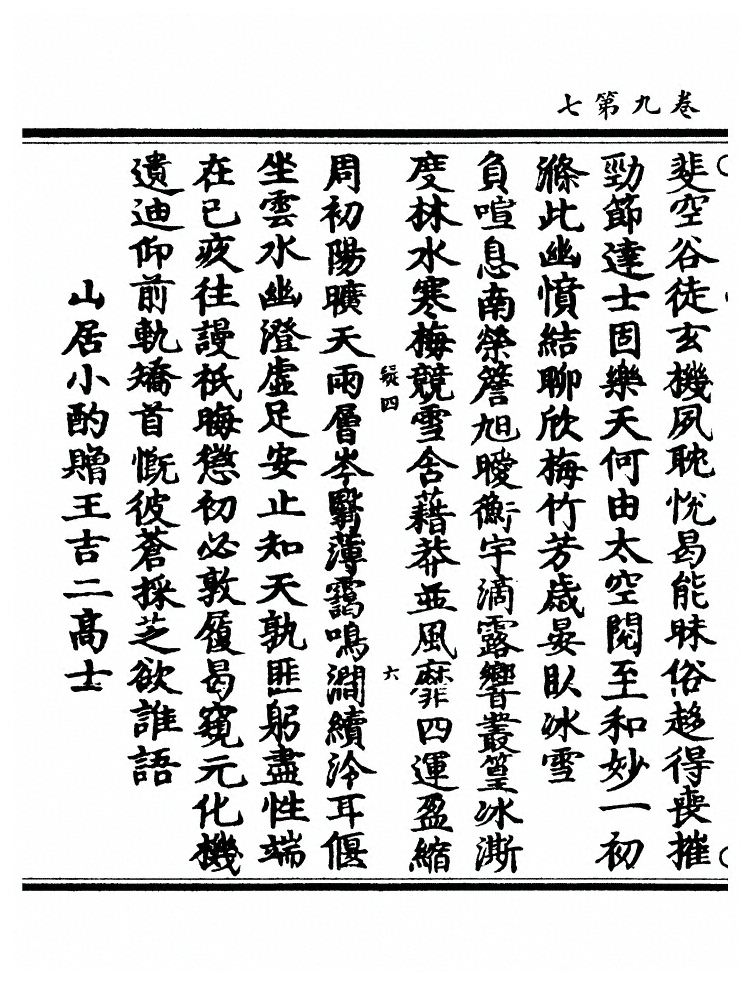 七第九卷
斐空谷徒玄機夙耽悅曷能昧俗趍得喪摧
勁節達士固樂天何由太空閱至和妙一初
滌此幽憤結聊欣梅竹芳歲晏臥冰雪
負暄息南榮簷旭曖衡宇滴露響叢篁冰澌
度林水寒梅競雪舍藉莽並風靡四運盈縮
縦四
六
周初陽曠天雨層岑翳薄靄鳴澗續泠耳偃
坐雲水幽澄虛足安止知天孰匪躬盡性端
在己疲往謾祇晦愆初必敦履曷窺元化機
遺迪仰前軌矯首慨彼蒼採芝欲誰語
山居小酌贈王吉二高士